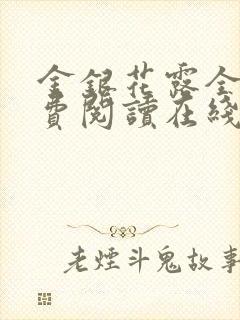 金銀花露全
費閱讀在綫
老煙斗鬼故事